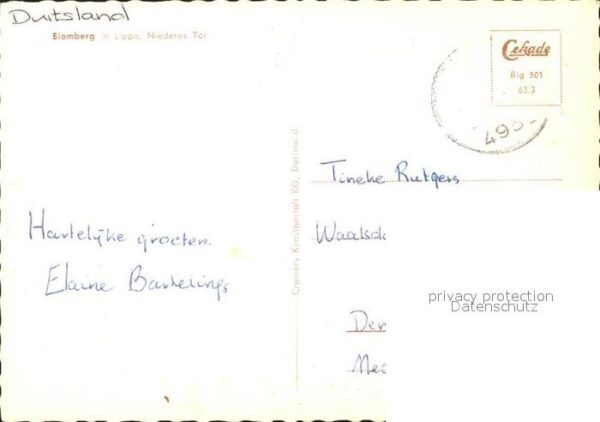 Duitsland
Blomberg in Lippe, Niederes Tor
Cekade
Blg 501
63.3
Cramers Kunstanstalt KG, Dortmund
Tineke Rutgers
Hartelijke groeten.
Elaine Bartelings
privacy protection
Datenschutz